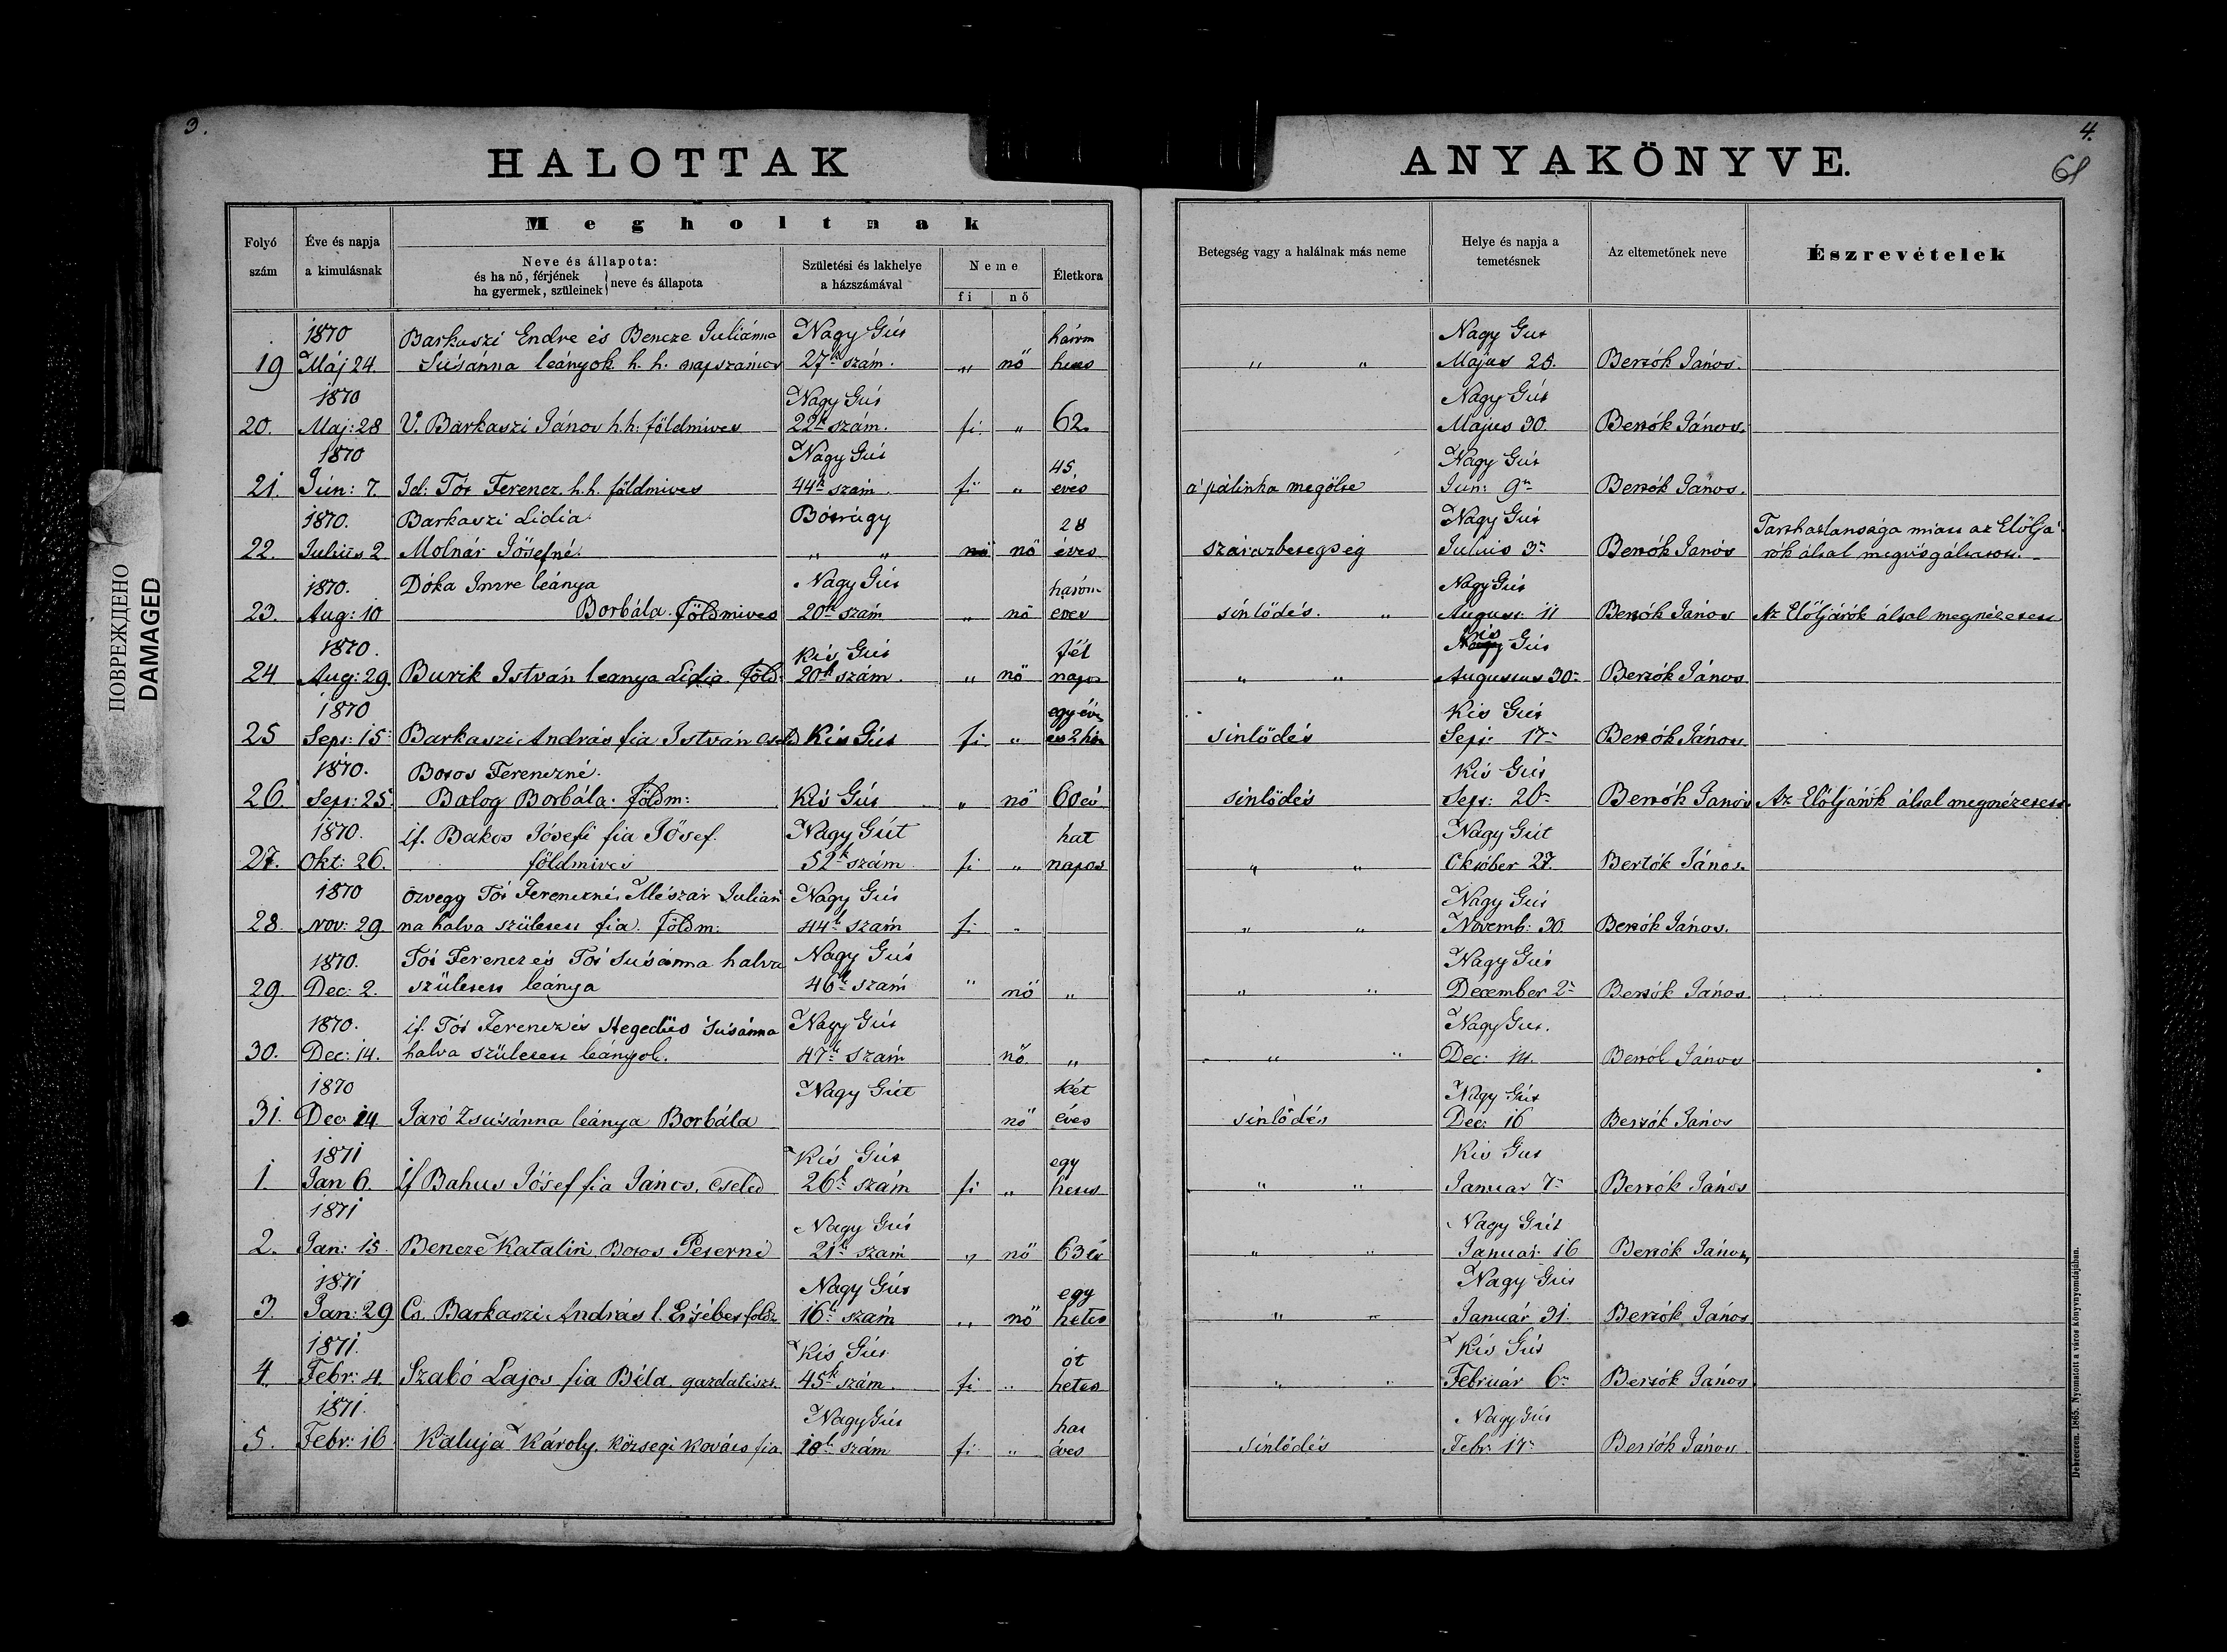 3.
4.
61
HALOTTAK
ANYAKÖNYVE.
ПОВРЕЖДЕНО
DAMAGED
Folyó szám
Éve és napja a kimulásnak
Megholtnak
Neve és állapota:
és ha nő, férjének
ha gyermek, szüleinek
neve és állapota
Születési és lakhelye a házszámával
Neme
fi
nő
Életkora
Betegség vagy a halálnak más neme
Helye és napja a temetésnek
Az eltemetőnek neve
Észrevételek
1870 Barkaszi Endre és Bencze Juliánna Nagy Gút három Nagy Gut
19 Máj 24. Susánna leányok h. h. napszámos 27k szám. „ nő hetes „ „ Majus 25. Bertók János.
1870 Nagy Gút Nagy Gút
20. Maj: 28 V. Barkaszi János h.h: földmives 22k szám. fi. „ 62. Majus 30. Bertók János.
1870 Nagy Gút 45 Nagy Gút
21. Jún: 7. Id: Tót Ferencz h.h. földmives 44k szám. fi „ éves a' pálinka megölte Jun: 9n Bertók János.
1870. Barkaszi Lidia. Bótrágy 28 Nagy Gút Tarthatlansága miatt az Elöljá-
22. Julius 2 Molnár Jósefné. „ „ nő nő éves szárazbetegség Julius 3n Bertók János rók által megvisgáltatott.
1870. Dóka Imre leánya Nagy Gút három Nagy Gút
23. Aug: 10 Borbála. Földmives 20k szám „ nő eves sinlődés. „ August: 11 Bertók János Az Elöljárók által megnézetett
1870. Kis Gút fél Kis Nagy Gút
24. Aug: 29. Burik István leanya Lidia Föld: 20k szám. „ nő napos „ „ Augustus 30n Bertók János
1870 egy év Kis Gút
25 Sept: 15n Barkaszi András fia István cseléd Kis Gút fi. „ es 2 hó sinlődés Sept: 17n Bertók János.
1870. Boros Ferenczné. Kis Gút
26. Sept: 25 Balog Borbála. Földm: Kis Gút „ nő 60 év sinlődés Sept: 26n Bertók János Az Elöljárók által megnézetett
1870. if. Bakos Jósefi fia Jósef. Nagy Gút hat Nagy Gút
27. Okt: 26. földmives 52k szám fi „ napos „ „ Október 27. Bertók János.
1870 özvegy Tót Ferenczné, Mészár Julián Nagy Gút Nagy Gút
28. Nov: 29 na halva született fia. Földm: 44k szám fi. „ „ „ Novemb: 30. Bertók János.
1870. Tót Ferencz és Tót Susánna halva Nagy Gút Nagy Gút
29 Dec: 2. született leánya 46k szám „ nő „ „ „ December 2n Bertók János.
1870. if. Tót Ferencz és Hegedüs Susánna Nagy Gút Nagy Gut.
30. Dec: 14. halva született leányok. 47k szám nő „ „ „ Dec: 14. Bertók János
1870 Nagy Gút két Nagy Gút
31. Dec 14 Jaró Zsusánna leánya Borbála nő éves sinlődés Dec: 16 Bertók János
1871 Kis Gút egy Kis Gut
1. Jan 6. if Bahus Jósef fia János, cseléd 26k szám fi „ hetes „ „ Januar 7n Bertók János
1871 Nagy Gút Nagy Gút
2. Jan: 15 Bencze Katalin Boros Peterné 21k szám „ nő 63 év „ „ Januar 16 Bertók János
1871 Nagy Gút egy Nagy Gút
3. Jan: 29 Cs. Barkaszi András l. Ersébet földm 16k szám „ nő hetes „ „ Január 31. Bertók János
1871. Kis Gút öt Kis Gút
4. Febr: 4. Szabó Lajos fia Béla. gazdatiszt. 45k szám. fi „ hetes „ „ Február 6n Bertók János
1871. Nagy Gút hat Nagy Gút
5. Febr: 16 Kaluja Károly, községi kovács fia 18k szám fi „ éves sinlődés Febr: 17n Bertók János
Debreczen. 1865. Nyomatott a város könyvnyomdájában.